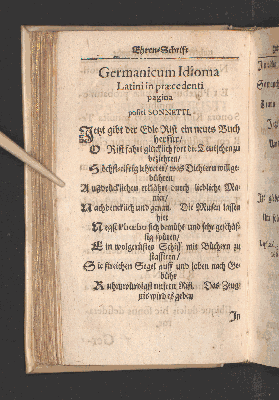 Ehren-Schrift
Germanicum Idioma
Latini in præcedenti
pagina
positi SONNETTI.
Jetzt gibt der Edle Rist ein neues Buch
herfür/
O Rist fahrt glücklich fort der Teutschen zu
beziehren/
Höchstfleissig lehret er/ was Dichtern wil ge-
bühren/
Außdrücklichen erklährt durch liebliche Ma-
nier/
Nachdencklich und genau. Die Musen lassen
hier
Negst sich bemüht und sehr geschäff-
tig spüren/
Ein wolgerüstes Schiff mit Büchern zu
staffiren/
Sie streichen Segel auff und loben nach Ge-
bühr
unserm Rist. Das Zeug-
nis wird es geben
In